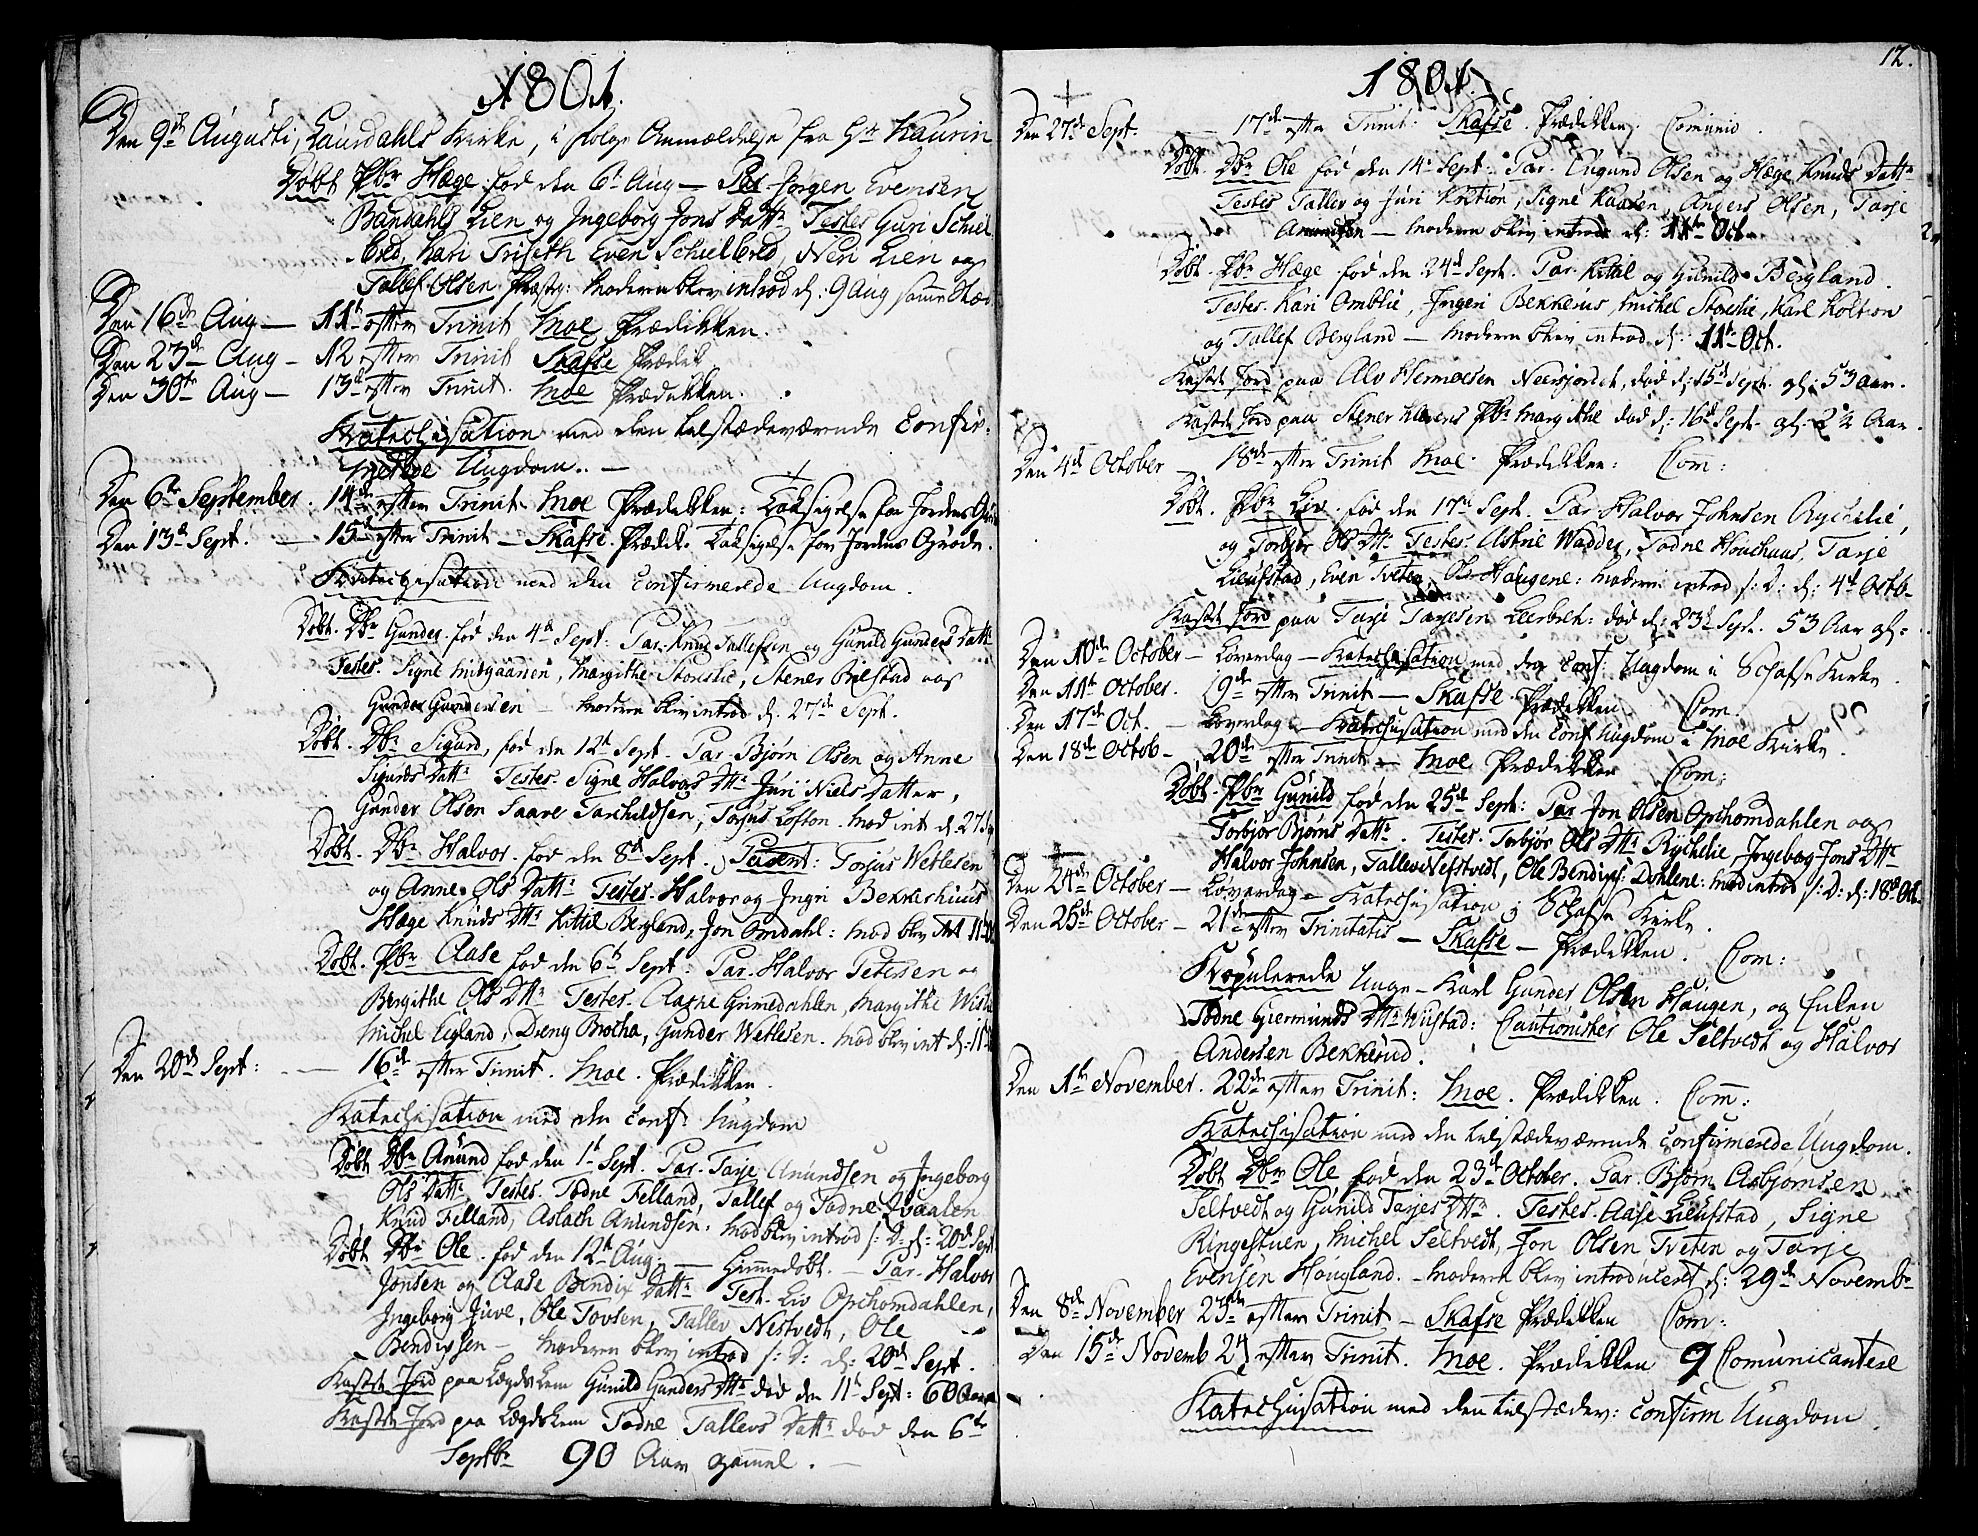 1801.
Den 9de Augusti, Laurdahls Kirke, i følge Anmældelse fra Hr Kaurin
Døbt Pbr Hæge fød den 6t Aug — Par Jørgen Evensen
Bandahls Lien og Ingeborg Jons Dattr Testes Guri Schiel
bred, Kari Triseth Even Schielbred, Neri Lien og
Tallef Olsen Præstg: Moderen blev introd d: 9 Aug samme Stæd
Den 16de Aug — 11te efter Trinit Moe Prædikken.
Den 23de Aug — 12 efter Trinit Skafse Prædik
Den 30te Aug — 13de efter Trinit. Moe Prædikken.
Katechisation med den tilstædeværende Confir-
merede Ungdom. —
Den 6te September. 14de efter Trinit Moe Prædikken: Taksigelse for Jordens Grøde
Den 13de Sept. — 15de efter Trinit — Skafse. Prædik: Taksigelse for Jordens Grøde.
Katechisation med den Confirmerede Ungdom.
Døbt. Dbr Gunder fød den 4de Sept: Par. Knud Tallefsen og Gunild Gunders Dattr
Testes. Signe Midgaarden, Margithe Storlie, Stener Bilstad og
Gunder Gundersen — Moderen blev introd d. 27de Sept.
Døbt. Dbr Sigurd, fød den 12te Sept — Par. Bjørn Olsen og Anne
Sigurds Dattr Testes. Signe Halvors Dttr Juri Niels Datter,
Gunder Olsen Saave Tarchildsen, Torjus Lofton. Mod int d. 27 Sep
Døbt. Dbr Halvor. fød den 8de Sept. Parent: Torjus Wetlesen
og Anne Ols Dattr Testes. Halvor og Ingri Bekkerhuus
Hæge Knuds Dttr Kittil Bergland, Jon Omdahl: Mod blev int 11
Døbt. Pbr Aase fød den 6te Sept: Par. Halvor Petersen og
Bergithe Ols Dttr Testes. Aasne Grimedahlen, Margithe
Michel Eigland, Dreng Brocha, Gunder Wetlesen. Mod blev int d: 11
Den 20de Sept: — 16de efter Trinit. Moe. Prædikken.
Katechisation med den Conf: Ungdom
Døbt Dbr Anund fød den 1te Sept. Par. Tarje Anundsen og Ingeborg
Ols Dattr Testes. Todne Felland, Tallef og Todne Qvaalen
Knud Felland, Aslach Anundsen. Mod blev introd s: D: d: 20de Sept
Døbt Dbr Ole. fød den 12te Aug. — Hiemmedøbt. — Par. Halvor
Jonsen og Aase Bendix Dattr Test. Liv Opchomdahlen,
Ingeborg Juve, Ole Tovsen, Tallev Nestvedt, Ole
Bendixsen — Moderen blev introd s: D: d: 20de Sept.
Kastet Jord paa Lægdslem Gunild Gunders Dttr død den 11te Sept: 60 Aar
Kastet Jord paa Lægdslem Todne Tallevs Dattr død den 6te
Septbr 90 Aar gammel. —
12.
1801.
Den 27de Sept. — 17de efter Trinit: Skafse. Prædikken. Comunio.
Døbt. Dbr Ole fød den 14de Sept: Par. Eugund Olsen og Hæge Knuds Dattr
Testes Tallev og Juri Koltion, Signe Kaasen, Anders Olsen, Tarje
Amundsen — Moderen blev introd d: 11te Oct.
Døbt. Pbr Hæge fød den 24de Sept. Par. Kitil og Gunild Bergland.
Testes. Kari Omblie, Ingeri Bekkerus, Michel Storlie, Karl Koltion
og Tallef Bergland — Moderen blev introd d: 11te Oct.
Kastet Jord paa Alv Hermoesen Neersjordet, død d: 15de Sept. gl: 53 Aar.
Kastet Jord paa Stener Klevens Pbr Margithe død d: 16de Sept. gl: 2½ Aar.
Den 4de October — 18de efter Trinit Moe. Prædikken: Com:
Døbt. Pbr Liv. fød den 17de Sept. Par Halvor Johnsen Rychelie,
og Torbjør Ols Dttr Testes. Astrie Wadder, Todne Houchuus, Tarje
Lieufstad, Even Tveten, Ole Haugene: Moderen introd s: D: d: 4de Octb.
Kastet Jord paa Tarje Tarjesen Leerbek: død d: 23de Sept. 53 Aar gl:
Den 10de October — Løverdag — Katechisation med den Conf: Ungdom i Schafse Kirke.
Den 11te October. 19de efter Trinit — Skafse Prædikken Com.
Den 17de Oct. — Løverdag — Katechisation med den Conf Ungdom i Moe Kirke.
Den 18de Octob — 20de efter Trinit — Moe Prædikken Com:
Døbt. Pbr Gunild fød den 25de Sept: Par Jon Olsen Opchomdahlen og
Torbjør Bjørns Dattr. Testes. Torbjør Ols Dttr Rychelie, Ingeborg Jons Dttr
Halvor Johnsen, Tallev Nestvedt, Ole Bendixs: Dahlene: Mod introd s: D: d: 18de Oct.
Den 24de October — Løverdag — Katechisation i Schafse Kirke.
Den 25de October — 21de efter Trinitatis — Skafse — Prædikken. Com:
Kopulerede Unge-Karl Gunder Olsen Haugen, og Enken
Todne Giermunds Dttr Wistad: Cautionister Ole Seltvedt og Halvor
Andersen Bekkerud.
Den 1te November. 22de efter Trinit: Moe. Prædikken. Com:
Katechisation med den tilstædeværende Confirmerede Ungdom.
Døbt Dbr Ole fød den 23de October. Par. Bjørn Asbjørnsen
Seltvedt og Gunild Tarjes Dttr. Testes. Aase Lieufstad, Signe
Ringestuen, Michel Seltvedt, Jon Olsen Tveten og Tarje
Evensen Hougland. — Moderen blev introduceret d: 29de Novembr
Den 8de November 23de efter Trinit — Skafse Prædikken Com:
Den 15de Novemb 24 efter Trinit. Moe. Prædikken 9 Comunicantere
Katechisation med den tilstædev: Confirm Ungdom.